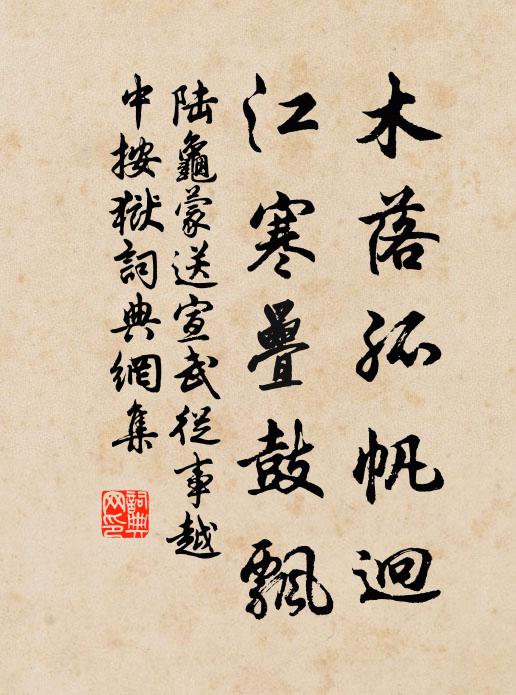 木落孤帆迥
江寒疊鼓飄
陆龜蒙送宣武從事越
中按獄詞典網集
詞典网印